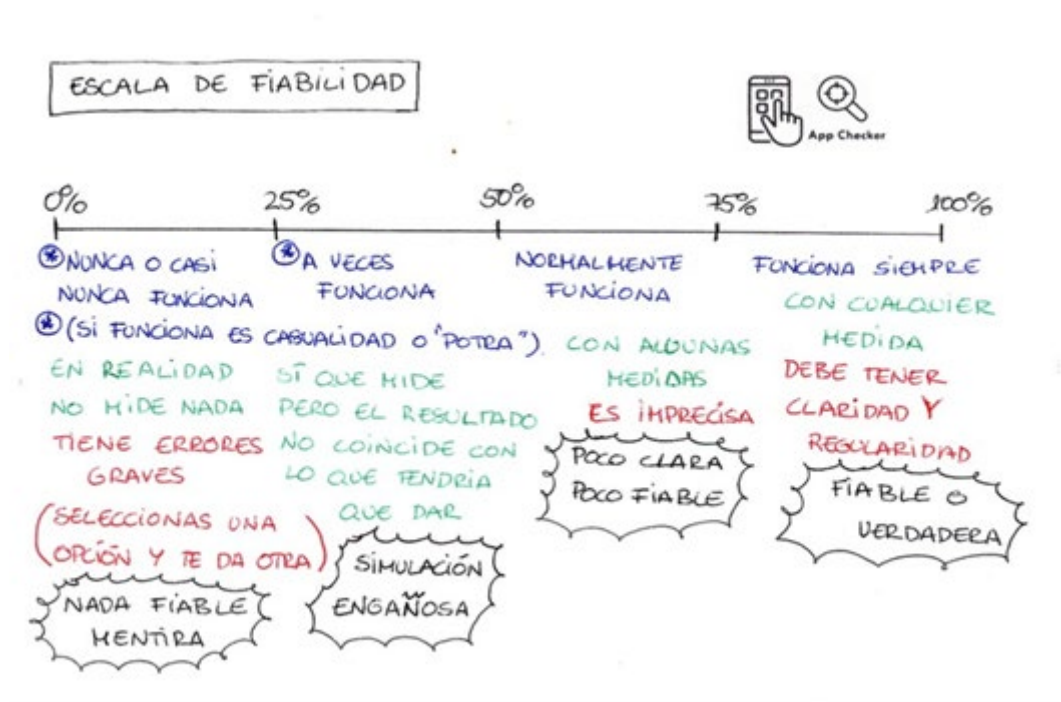 ESCALA DE FIABILIDAD
App Checker
0% 25% 50% 75% 100%
* NUNCA O CASI
NUNCA FUNCIONA
* (SI FUNCIONA ES CASUALIDAD O "POTRA").
EN REALIDAD
NO MIDE NADA
TIENE ERRORES
GRAVES
(SELECCIONAS UNA
OPCIÓN Y TE DA OTRA)
NADA FIABLE
MENTIRA
* A VECES
FUNCIONA
SÍ QUE MIDE
PERO EL RESULTADO
NO COINCIDE CON
LO QUE TENDRIA
QUE DAR
SIMULACIÓN
ENGAÑOSA
NORMALMENTE
FUNCIONA
CON ALGUNAS
MEDIDAS
ES IMPRECISA
POCO CLARA
POCO FIABLE
FUNCIONA SIEMPRE
CON CUALQUIER
MEDIDA
DEBE TENER
CLARIDAD Y
REGULARIDAD
FIABLE O
VERDADERA